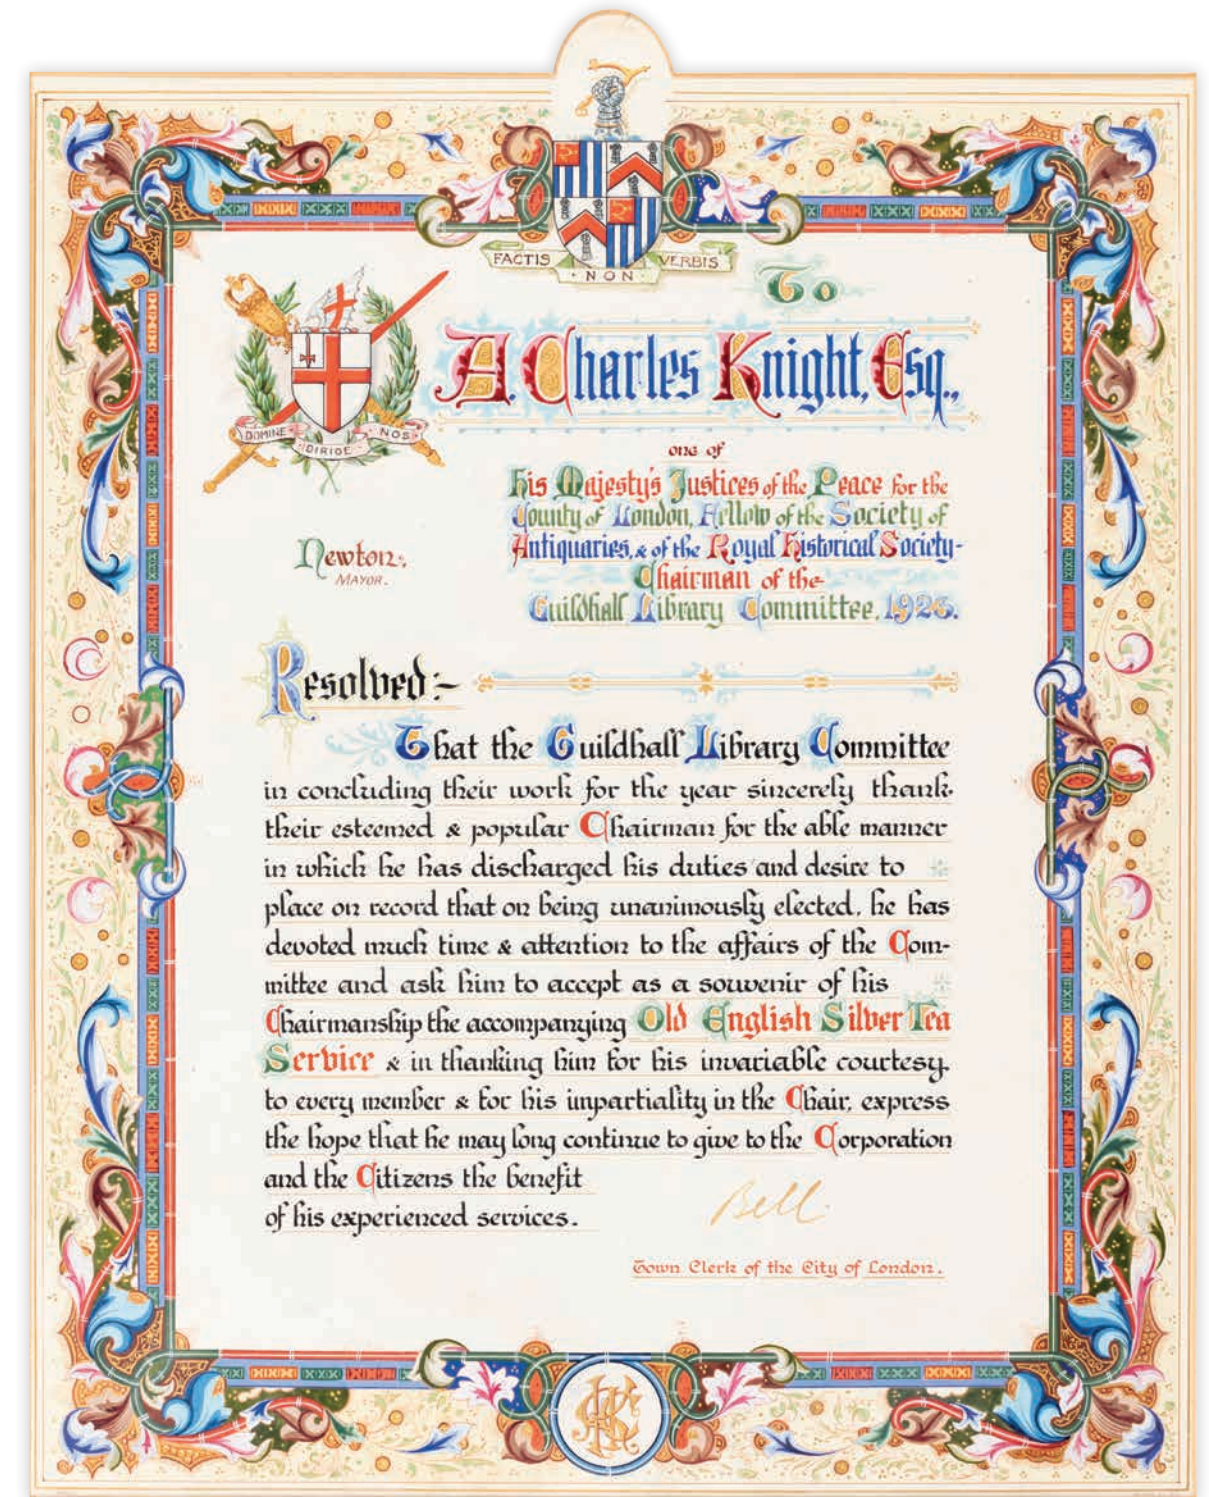 FACTIS NON VERBIS
To
A. Charles Knight, Esq.,
DOMINE DIRIGE NOS
one of
His Majesty's Justices of the Peace for the
County of London, Fellow of the Society of
Antiquaries, & of the Royal Historical Society-
Chairman of the
Guildhall Library Committee, 1923.
Newton:
MAYOR.
Resolved:-
That the Guildhall Library Committee
in concluding their work for the year sincerely thank
their esteemed & popular Chairman for the able manner
in which he has discharged his duties and desire to
place on record that on being unanimously elected, he has
devoted much time & attention to the affairs of the Com-
mittee and ask him to accept as a souvenir of his
Chairmanship the accompanying Old English Silver Tea
Service & in thanking him for his invariable courtesy
to every member & for his impartiality in the Chair, express
the hope that he may long continue to give to the Corporation
and the Citizens the benefit
of his experienced services.
Bell
Town Clerk of the City of London.